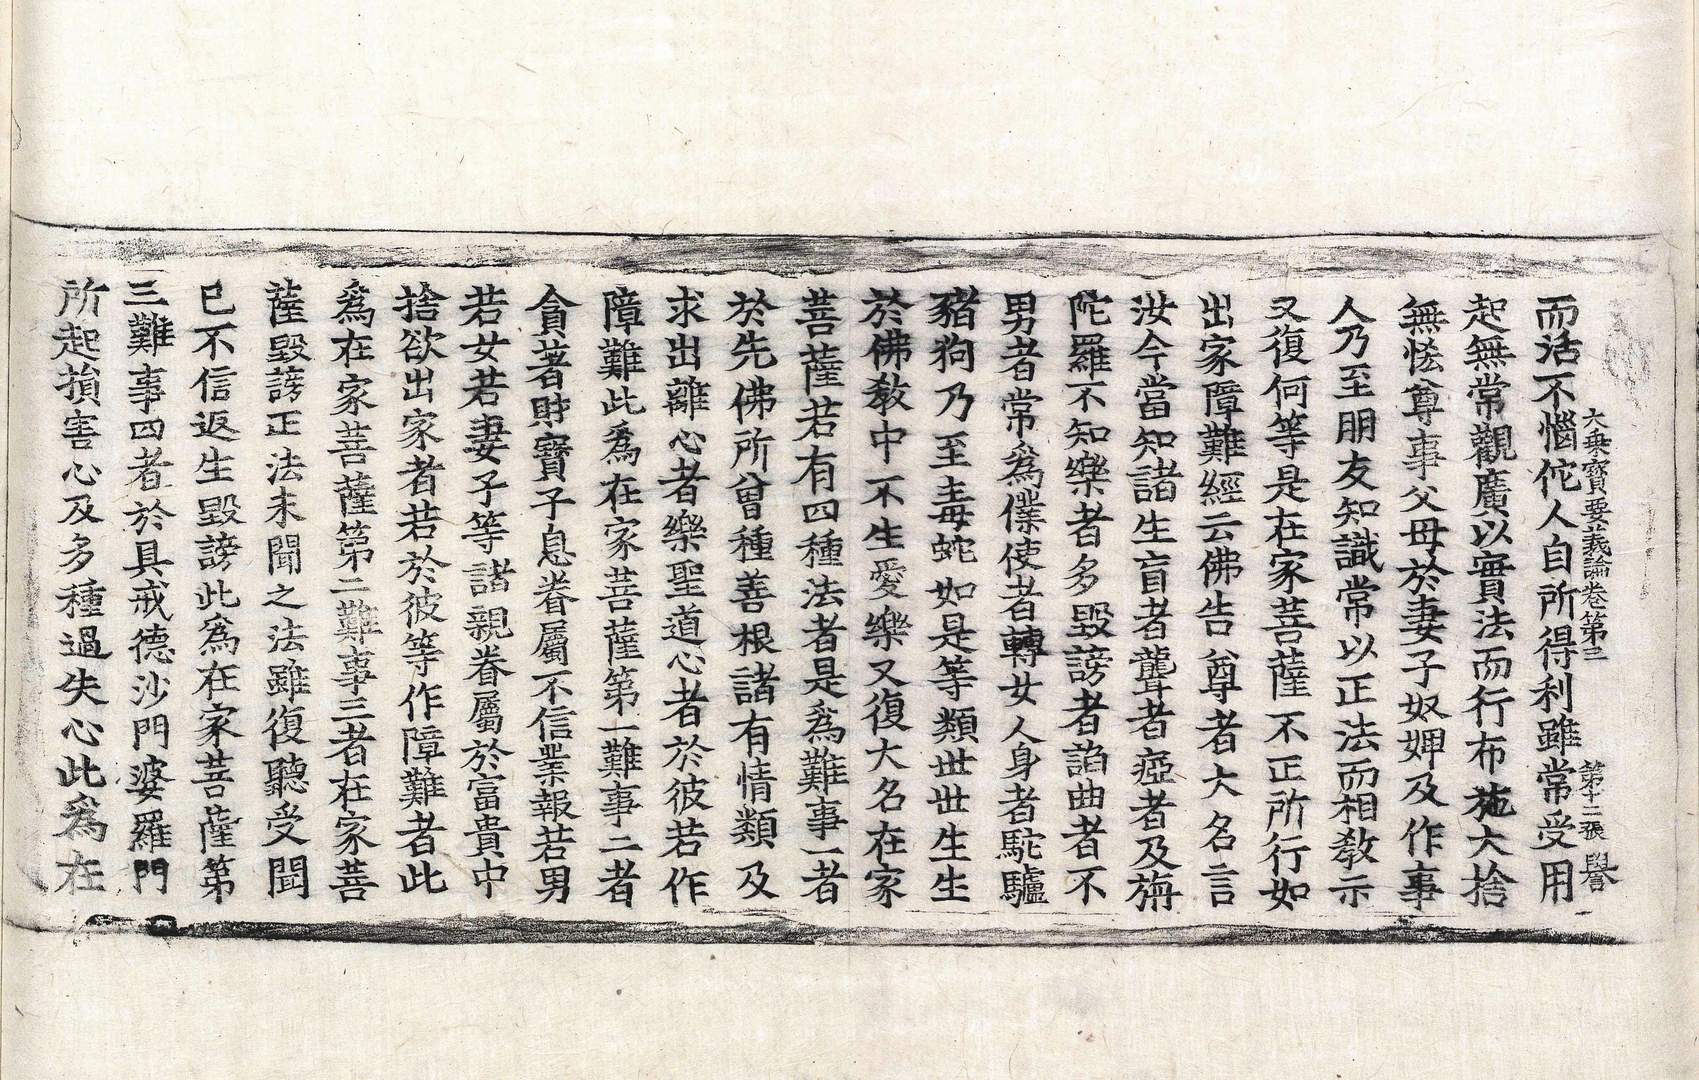 大乗寳要義論卷第三　第十二張　譽
而活不惱佗人自所得利雖常受用
起無常觀廣以實法而行布施大捨
無悋尊事父母於妻子奴婢及作事
人乃至朋友知識常以正法而相教示
又復何等是在家菩薩不正所行如
出家障難經云佛告尊者大名言
汝今當知諸生盲者聾者瘂者及旃
陀羅不知樂者多毀謗者諂曲者不
男者常爲僕使者轉女人身者駝驢
豬狗乃至毒蛇如是等類世世生生
於佛教中不生愛樂又復大名在家
菩薩若有四種法者是爲難事一者
於先佛所曾種善根諸有情類及
求出離心者樂聖道心者於彼若作
障難此爲在家菩薩第一難事二者
貪著財寳子息眷屬不信業報若男
若女若妻子等諸親眷屬於富貴中
捨欲出家者若於彼等作障難者此
爲在家菩薩第二難事三者在家菩
薩毀謗正法未聞之法雖復聽受聞
已不信返生毀謗此爲在家菩薩第
三難事四者於具戒德沙門婆羅門
所起損害心及多種過失心此爲在